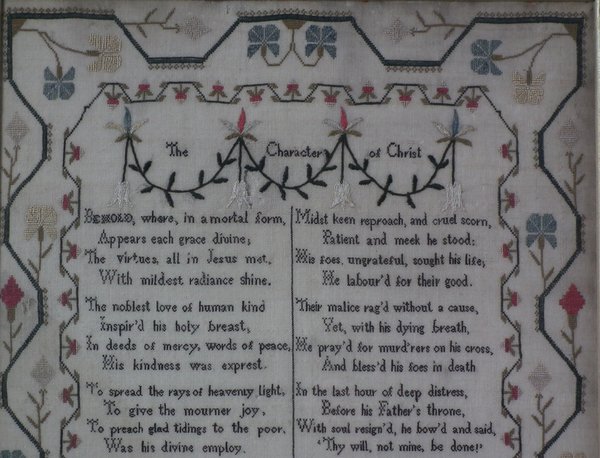 The Character of Christ
BEHOLD, where, in a mortal form,
Appears each grace divine;
The virtues, all in Jesus met,
With mildest radiance shine.
The noblest love of human kind
Inspir'd his holy breast;
In deeds of mercy, words of peace,
His kindness was exprest.
To spread the rays of heavenly light,
To give the mourner joy,
To preach glad tidings to the poor,
Was his divine employ.
Midst keen reproach, and cruel scorn,
Patient and meek he stood:
His foes, ungrateful, sought his life;
He labour'd for their good.
Their malice rag'd without a cause,
Yet, with his dying breath,
He pray'd for murd'rers on his cross,
And bless'd his foes in death
In the last hour of deep distress,
Before his Father's throne,
With soul resign'd, he bow'd and said,
'Thy will, not mine, be done!'